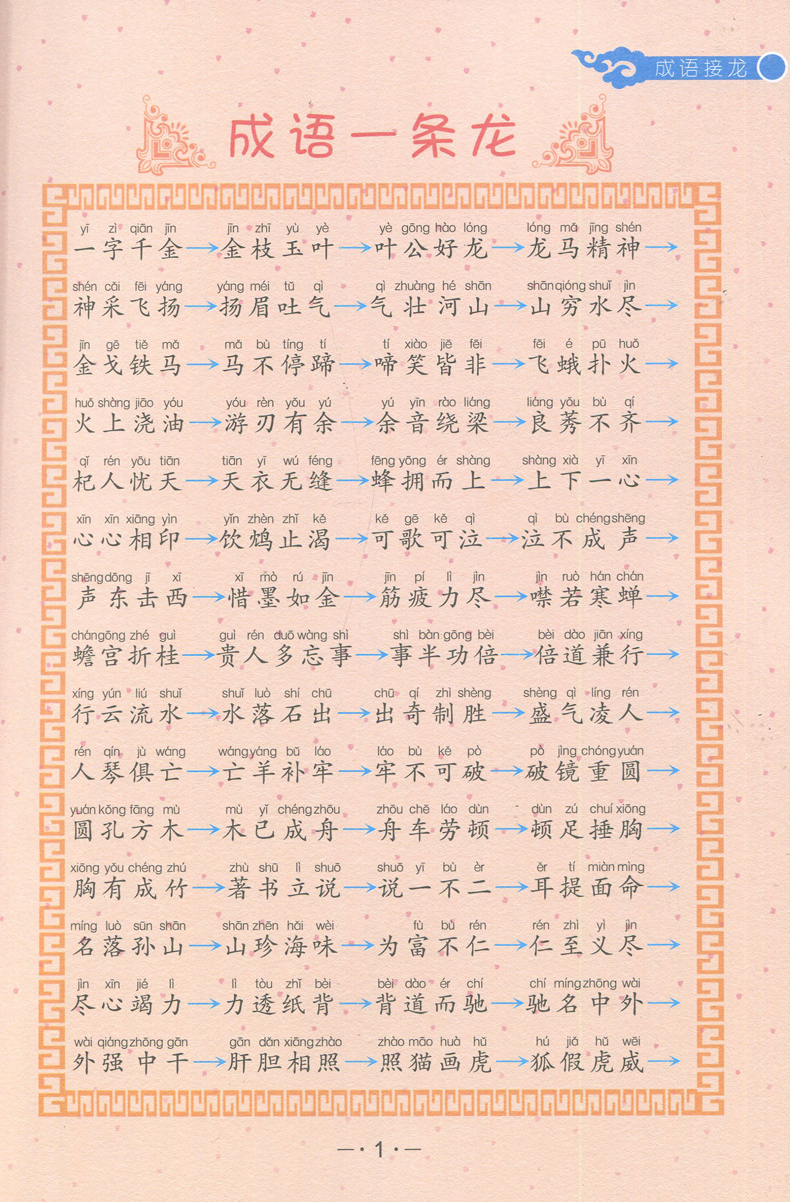 成语接龙
成语一条龙
yī zì qiān jīn jīn zhī yù yè yè gōng hào lóng lóng mǎ jīng shén
一字千金→金枝玉叶→叶公好龙→龙马精神→
shén cǎi fēi yáng yáng méi tǔ qì qì zhuàng hé shān shān qióng shuǐ jìn
神采飞扬→扬眉吐气→气壮河山→山穷水尽→
jīn gē tiě mǎ mǎ bù tíng tí tí xiào jiē fēi fēi é pū huǒ
金戈铁马→马不停蹄→啼笑皆非→飞蛾扑火→
huǒ shàng jiāo yóu yóu rèn yǒu yú yú yīn rào liáng liáng yǒu bù qí
火上浇油→游刃有余→余音绕梁→良莠不齐→
qǐ rén yōu tiān tiān yī wú féng fēng yōng ér shàng shàng xià yī xīn
杞人忧天→天衣无缝→蜂拥而上→上下一心→
xīn xīn xiāng yìn yǐn zhèn zhǐ kě kě gē kě qì qì bù chéng shēng
心心相印→饮鸩止渴→可歌可泣→泣不成声→
shēng dōng jī xī xī mò rú jīn jīn pí lì jìn jìn ruò hán chán
声东击西→惜墨如金→筋疲力尽→噤若寒蝉→
chán gōng zhé guì guì rén duō wàng shì shì bàn gōng bèi bèi dào jiān xíng
蟾宫折桂→贵人多忘事→事半功倍→倍道兼行→
xíng yún liú shuǐ shuǐ luò shí chū chū qí zhì shèng shèng qì líng rén
行云流水→水落石出→出奇制胜→盛气凌人→
rén qín jù wáng wáng yáng bǔ láo láo bù kě pò pò jìng chóng yuán
人琴俱亡→亡羊补牢→牢不可破→破镜重圆→
yuán kǒng fāng mù mù yǐ chéng zhōu zhōu chē láo dùn dùn zú chuí xiōng
圆孔方木→木已成舟→舟车劳顿→顿足捶胸→
xiōng yǒu chéng zhú zhù shū lì shuō shuō yī bù èr ěr tí miàn mìng
胸有成竹→著书立说→说一不二→耳提面命→
míng luò sūn shān shān zhēn hǎi wèi fù bù rén rén zhì yì jìn
名落孙山→山珍海味→为富不仁→仁至义尽→
jìn xīn jié lì lì tòu zhǐ bèi bèi dào ér chí chí míng zhōng wài
尽心竭力→力透纸背→背道而驰→驰名中外→
wài qiáng zhōng gān gān dǎn xiāng zhào zhào māo huà hǔ hú jiǎ hǔ wēi
外强中干→肝胆相照→照猫画虎→狐假虎威→
—·1·—